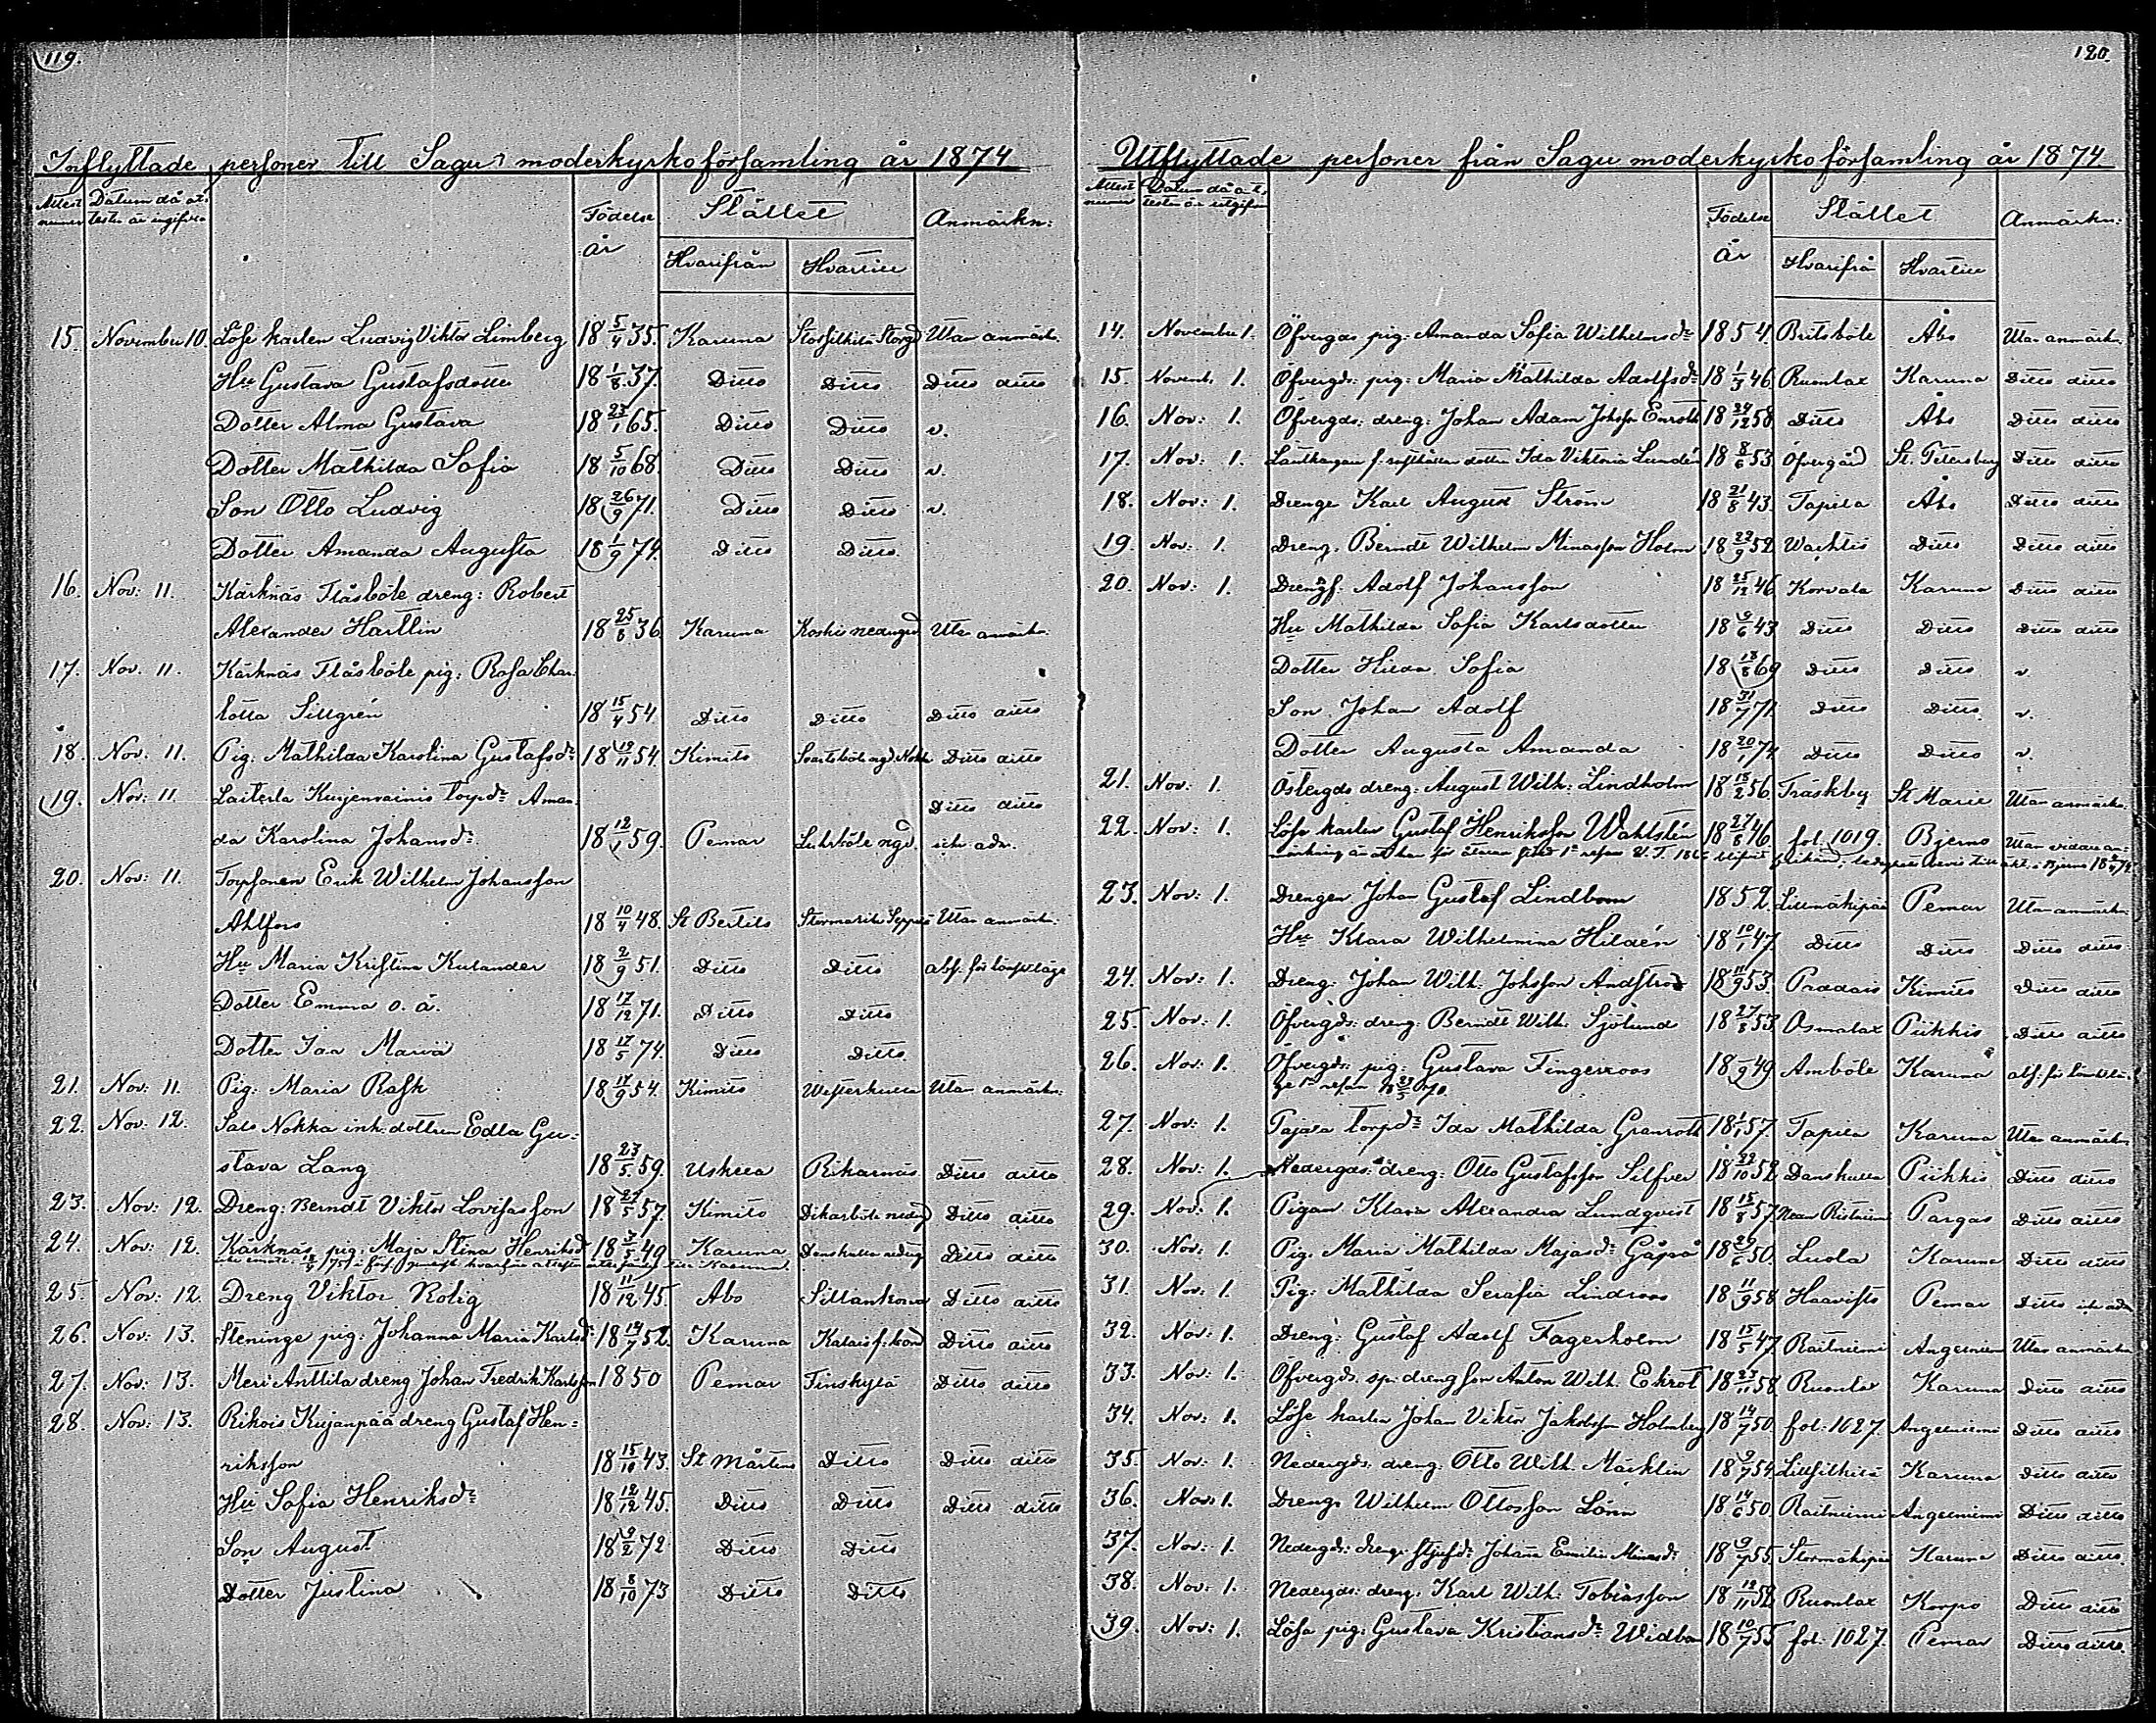 119.
Inflyttade personer till Sagu moderkyrkoförsamling år 1874
Attest Datum då at: Födelse år Stället Anmärkn:
Hvarifrån Hvartill
15. November 10. Löse karlen Ludvig Viktor Limberg 18 5/4 35. Karuna Utan anmärkn.
Hu Gustava Gustafsdotter 18 1/8 37. Ditto Ditto Ditto ditto
Dotter Alma Gustava 18 23/1 65. Ditto Ditto v.
Dotter Mathilda Sofia 18 5/10 68. Ditto Ditto v.
Son Otto Ludvig 18 26/9 71. Ditto Ditto v.
Dotter Amanda Augusta 18 1/9 74. Ditto Ditto
16. Nov: 11. Kärknäs Flåsböle dreng: Robert
Alexander Hartlin 18 25/8 36 Karuna Koskis nedergd Utan anmärkn.
17. Nov. 11. Kärknäs Flåsböle pig: Rosa Char:
lotta Sillgrén 18 15/4 54 Ditto Ditto Ditto ditto
18. Nov. 11. Pig. Mathilda Karolina Gustafsd: 18 19/11 54. Kimito Ditto ditto
19. Nov: 11. Laiterla Kurjenrainio torpd: Aman: Ditto ditto
da Karolina Johansd: 18 12/1 59. Pemar
20. Nov: 11. Torpsonen Erik Wilhelm Johansson
Ahlfors 18 10/4 48. St Bertils Utan anmärkn.
Hu Maria Kristina Kulander 18 2/9 51. Ditto Ditto
Dotter Emma o. ä. 18 17/12 71. Ditto Ditto
Dotter Ida Maria 18 17/5 74. Ditto Ditto
21. Nov: 11. Pig: Maria Rask 18 14/9 54. Kimito Westerkulla Utan anmärkn.
22. Nov: 12. Salo Nokka inh. dottren Edla Gu:
stava Lang 18 23/5 59. Uskela Rikarnäs Ditto ditto
23. Nov: 12. Dreng: Berndt Viktor Lovisasson 18 27/5 57. Kimito Ditto ditto
24. Nov: 12. Kärknäs pig: Maja Stina Henriksd: 18 3/5 49 Karuna Danskulla nedrg Ditto ditto
25. Nov: 12. Dreng Viktor Rolig 18 11/12 45. Abo Siltankorva Ditto ditto
26. Nov: 13. Steninge pig: Johanna Maria Karlsd: 18 14/7 52. Karuna Ditto ditto
27. Nov: 13. Meri Anttila dreng Johan Fredrik Karlsson 1850 Pemar Finskylä Ditto ditto
28. Nov: 13. Rikois Kujanpää dreng Gustaf Hen:
riksson 18 15/10 43. St Mårtens Ditto Ditto ditto
Hu Sofia Henriksd: 18 12/12 45. Ditto Ditto Ditto ditto
Son August 18 9/2 72 Ditto Ditto
Dotter Justina 18 8/10 73 Ditto Ditto
120.
Utflyttade personer från Sagu moderkyrkoförsamling år 1874
Attest Datum då at: Födelse År Stället Anmärkn:
Hvarifrån Hvartill
14. November 1. Öfvergds pig: Amanda Sofia Wilhelmsd: 1854. Britsböle Åbo Utan anmärkn.
15. Novemb. 1. Öfvergds: pig: Maria Mathilda Adolfsd: 18 1/3 46 Ruonlax Karuna Ditto ditto
16. Nov: 1. Öfvergds: dreng: Johan Adam Johsson Enroth 18 24/12 58 Ditto Åbo Ditto ditto
17. Nov: 1. dotter Ida Viktoria Lundén 18 8/6 53 Öfvergård St. Petersburg Ditto ditto
18. Nov: 1. Drenge Karl August Ström 18 21/8 43. Tapila Åbo Ditto ditto
19. Nov: 1. Dreng. Berndt Wilhelm Minasson Holm 18 22/9 52 Ditto Ditto ditto
20. Nov: 1. Drengf. Adolf Johansson 18 25/12 46 Korvala Karuna Ditto ditto
Hu Mathilda Sofia Karlsdotter 18 9/6 43 Ditto Ditto Ditto ditto
Dotter Hilda Sofia 18 18/8 69 Ditto Ditto v
Son Johan Adolf 18 31/7 71 Ditto Ditto v.
Dotter Augusta Amanda 18 20/1 74 Ditto Ditto v.
21. Nov: 1. Östergds dreng: August Wilh: Lindholm 18 15/2 56 Träskby St Marie Utan anmärkn.
22. Nov: 1. Löse karlen Gustaf Henriksson Wahlstén 18 27/8 46. fol. 1019. Bjerno Utan vidare an:
23. Nov: 1. Drengen Johan Gustaf Lindbom 1852. Lillmäkipää Pemar Utan anmärkn.
Hu Klara Wilhelmina Hildén 18 10/1 47 Ditto Ditto Ditto ditto
24. Nov: 1. Dreng: Johan Wilh. Johsson Andström 18 11/9 53. Pradais Kimito Ditto ditto
25. Nov: 1. Öfvergds: dreng: Berndt Wilh: Sjölund 18 27/8 53 Osmalax Piikkis Ditto ditto
26. Nov: 1. Öfvergds: pig: Gustava Fingerroos 18 /9 49 Amböle Karuna
27. Nov: 1. Tapila torpd: Ida Mathilda Granroth 18 1/1 57. Tapila Karuna Utan anmärkn
28. Nov: 1. Nedergds: dreng: Otto Gustafsson Silfver 18 22/10 52 Danskulla Piikkis Ditto ditto
29. Nov: 1. Pigan Klara Alexandra Lundqvist 18 15/8 57. Pargas Ditto ditto
30. Nov: 1. Pig. Maria Mathilda Majasd: Gåsrå 18 29/6 50. Luola Karuna Ditto ditto
31. Nov: 1. Pig: Mathilda Serafia Lindroos 18 11/9 58 Haavisto Pemar Ditto
32. Nov: 1. Dreng: Gustaf Adolf Fagerholm 18 15/5 47 Raitniemi Angelniemi Utan anmärkn
33. Nov: 1. Öfvergds. sp: drengson Anton Wilh. Ekrot 18 23/11 58 Ruonlax Karuna Ditto ditto
34. Nov: 1. Löse karlen Johan Viktor Jakobsson Holmberg 18 14/7 50 fol: 1027. Angelniemi Ditto ditto
35. Nov: 1. Nedergds. dreng: Otto Wilh. Märklin 18 9/7 54 Lillsilkilä Karuna Ditto ditto
36. Nov: 1. Dreng: Wilhelm Ottosson Lönn 18 14/6 50 Raitniemi Angelniemi Ditto ditto
37. Nov: 1. Nedergds: dreng: stjufd: Johana Emilia Minasd: 18 9/7 55. Stormäkipää Karuna Ditto ditto
38. Nov: 1. Nedergds: dreng. Karl Wilh. Tobiasson 18 12/11 52 Ruonlax Korpo Ditto ditto
39. Nov: 1. Lösa pig: Gustava Kristiansd: Widbom 18 10/7 55 fol: 1027. Pemar Ditto ditto.